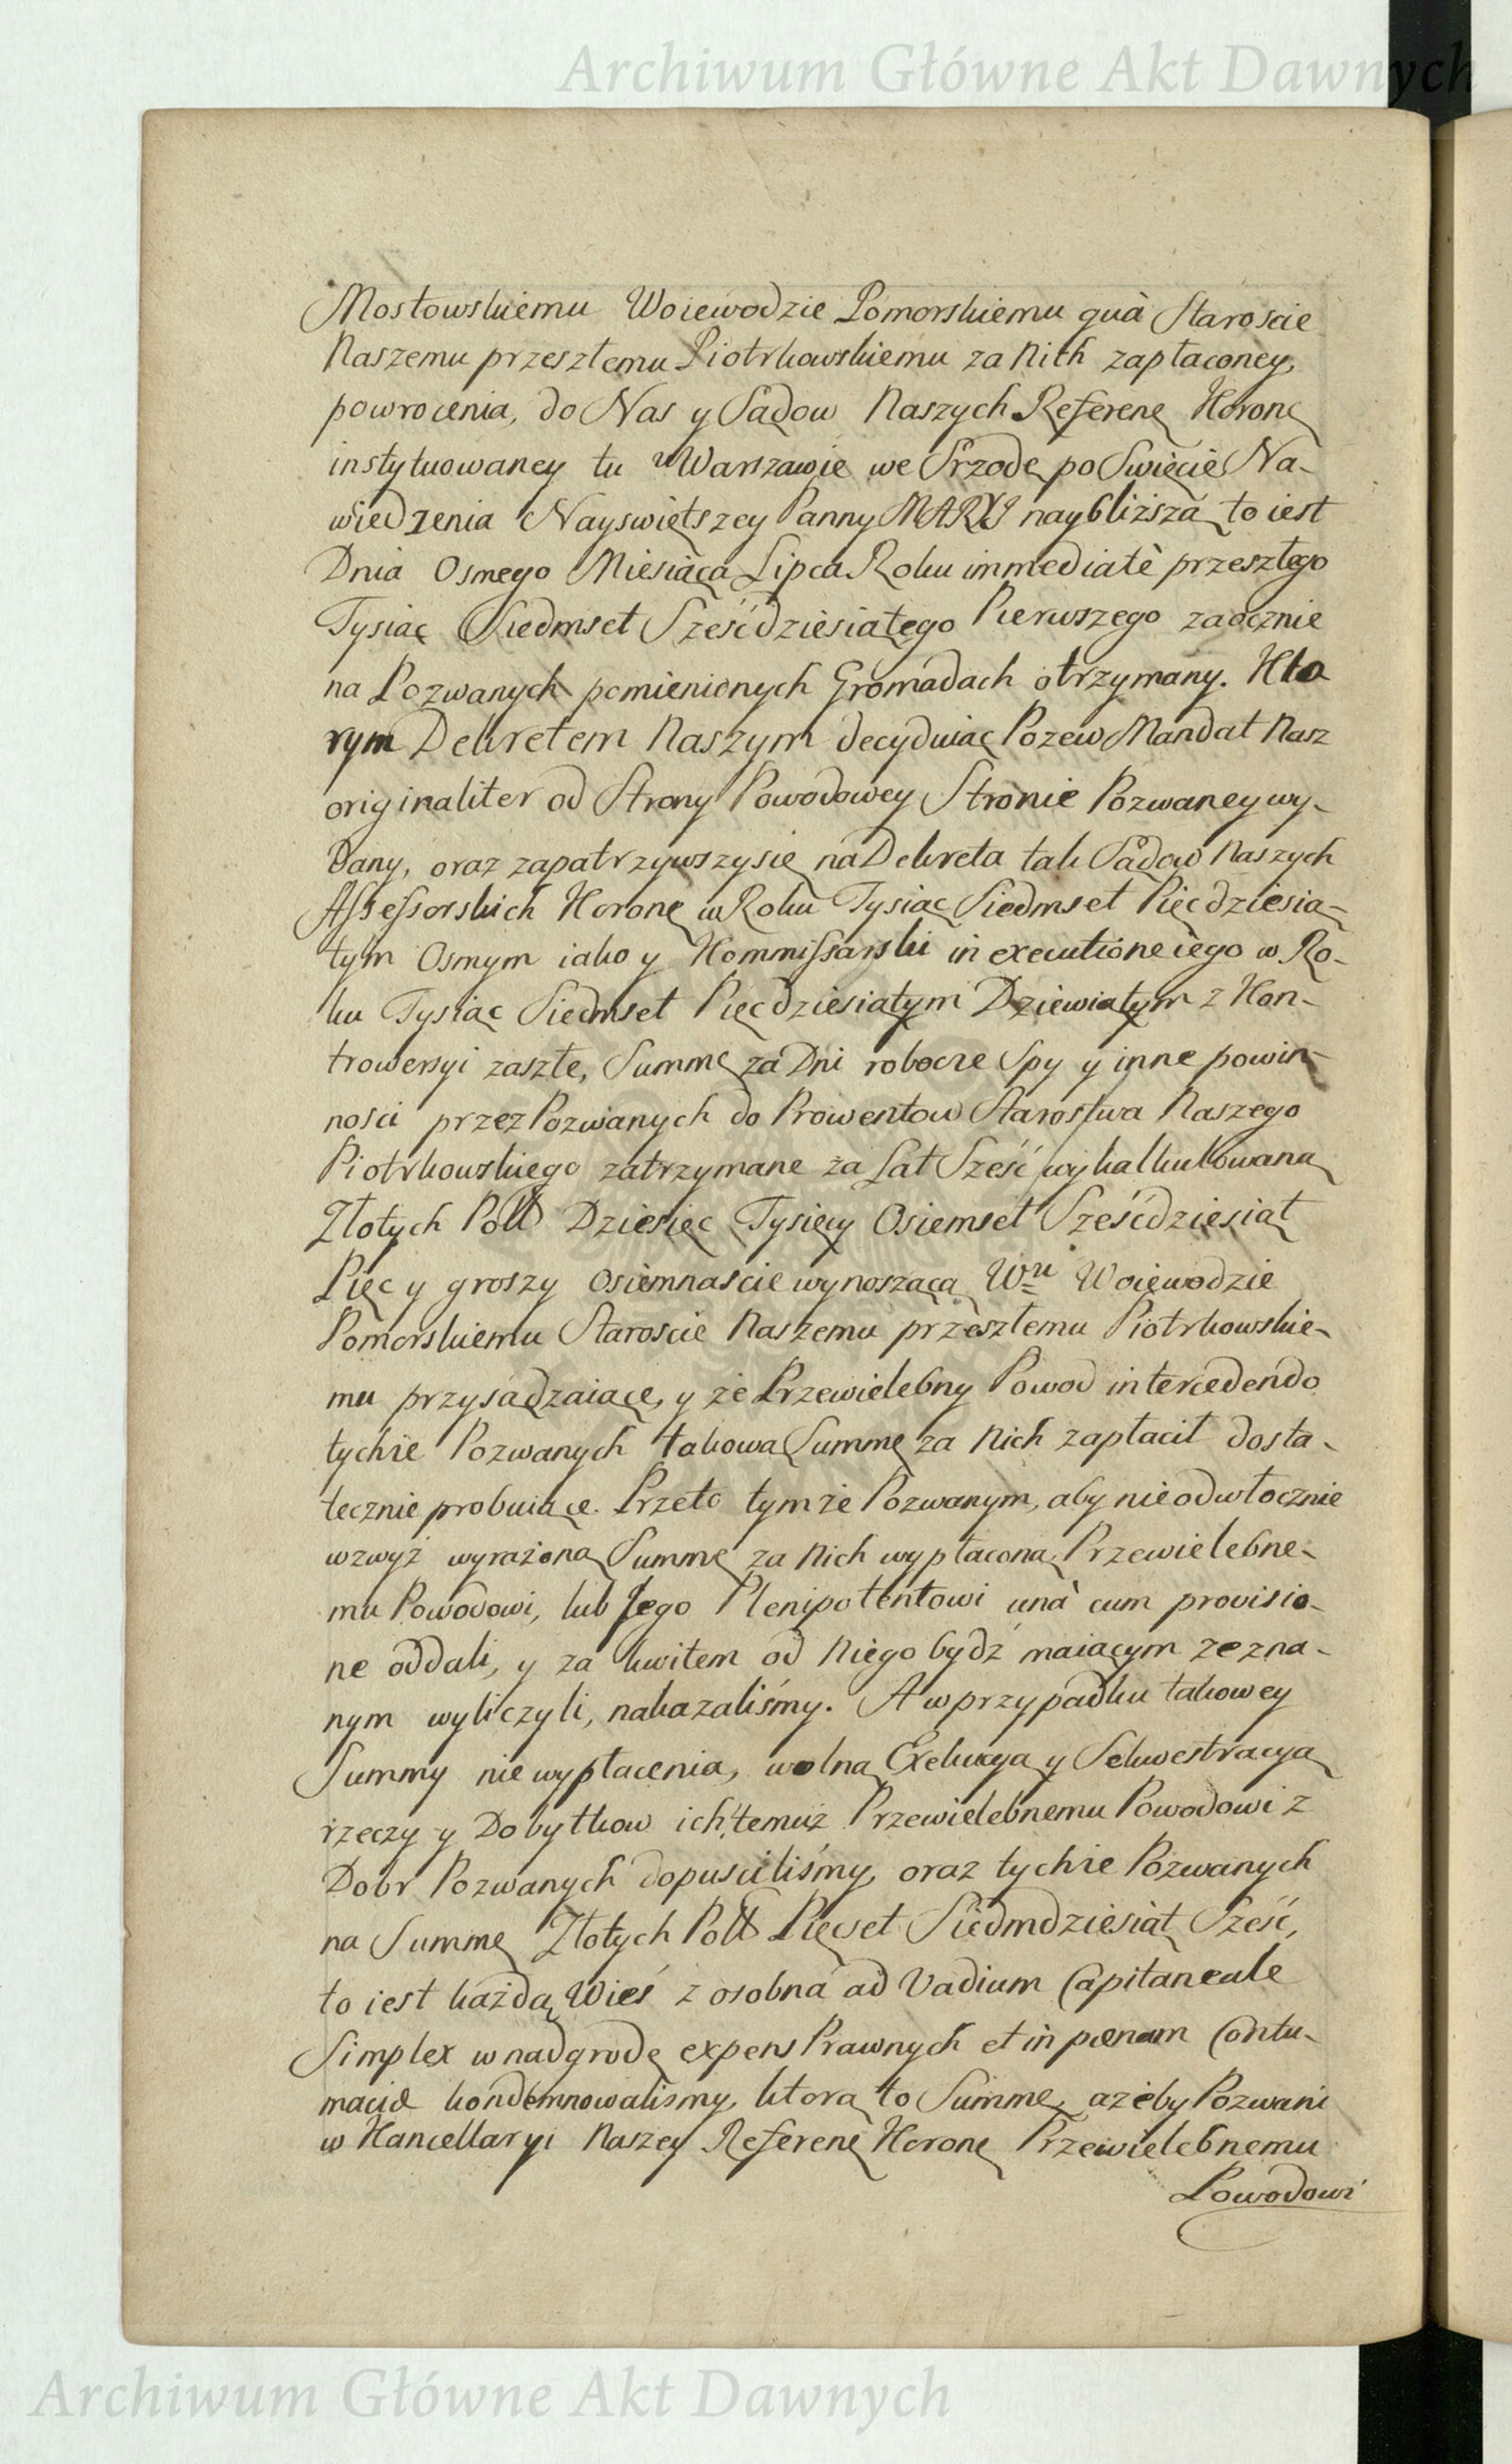 Archiwum Główne Akt Dawnych
Mostowskiemu Woiewodzie Pomorskiemu quà Staroscie
Naszemu przeszłemu Piotrkowskiemu za Nich zapłaconey,
powrocenia, do Nas y Sądow Naszych Referenę Koronę
instytuowaney tu w Warszawie we Srzodę po Swięcie Na-
wiedzenia Nayswiętszey Panny MARYI naybliższą to iest
Dnia Osmego Miesiąca Lipca Roku immediatè przeszłego
Tysiąc Siedmset Sześćdziesiątego Pierwszego zaocznie
na Pozwanych pomienionych Gromadach otrzymany. Kto
rym Dekretem Naszym decyduiąc Pozew Mandat Nasz
originaliter od Strony Powodowey Stronie Pozwaney wy-
dany, oraz zapatrzywszysię na Dekreta tak Sądow Naszych
Assessorskich Koronę w Roku Tysiąc Siedmset Pięcdziesią-
tym Osmym iako y Kommissarski in executionę iego w Ro-
ku Tysiąc Siedmset Pięcdziesiątym Dziewiątym z Kon-
trowersyi zaszłe, Summę za Dni robocze Spy y inne powin-
nosci przez Pozwanych do Prowentow Starostwa Naszego
Piotrkowskiego zatrzymane za Lat Sześć wykalkulowaną
Złotych Poll Dziesięc Tysięcy Osiemset Sześćdziesiąt
Pięc y groszy osiemnascie wynoszącą Wmu Woiewodzie
Pomorskiemu Staroscie Naszemu przeszłemu Piotrkowskie-
mu przysądzaiące, y że Przewielebny Powod intercedendo
tychże Pozwanych takową Summę za Nich zapłacił dosta-
tecznie probuiące. Przeto tymże Pozwanym, aby nieodwłocznie
wzwyż wyrażoną Summę za Nich wypłaconą Przewielebne-
mu Powodowi, lub Jego Plenipotentowi unà cum provisio-
ne oddali, y za kwitem od Niego bydź maiącym zezna-
nym wyliczyli, nakazaliśmy. A w przypadku takowey
Summy nie wypłacenia, wolną Exekucyą y Sekwestracyą
rzeczy y Dobytkow ich temuż Przewielebnemu Powodowi z
Dobr Pozwanych dopusciliśmy, oraz tychże Pozwanych
na Summę Złotych Poll Pięcset Siedmdziesiąt Sześć,
to iest każdą Wieś z osobna ad Vadium Capitaneale
Simplex w nadgrodę expens Prawnych et in pænam Contu-
maciæ kondemnowalismy, ktorą to Summę, ażeby Pozwani
w Kancellaryi Naszey Referenę Koronę Przewielebnemu
Powodowi
Archiwum Główne Akt Dawnych